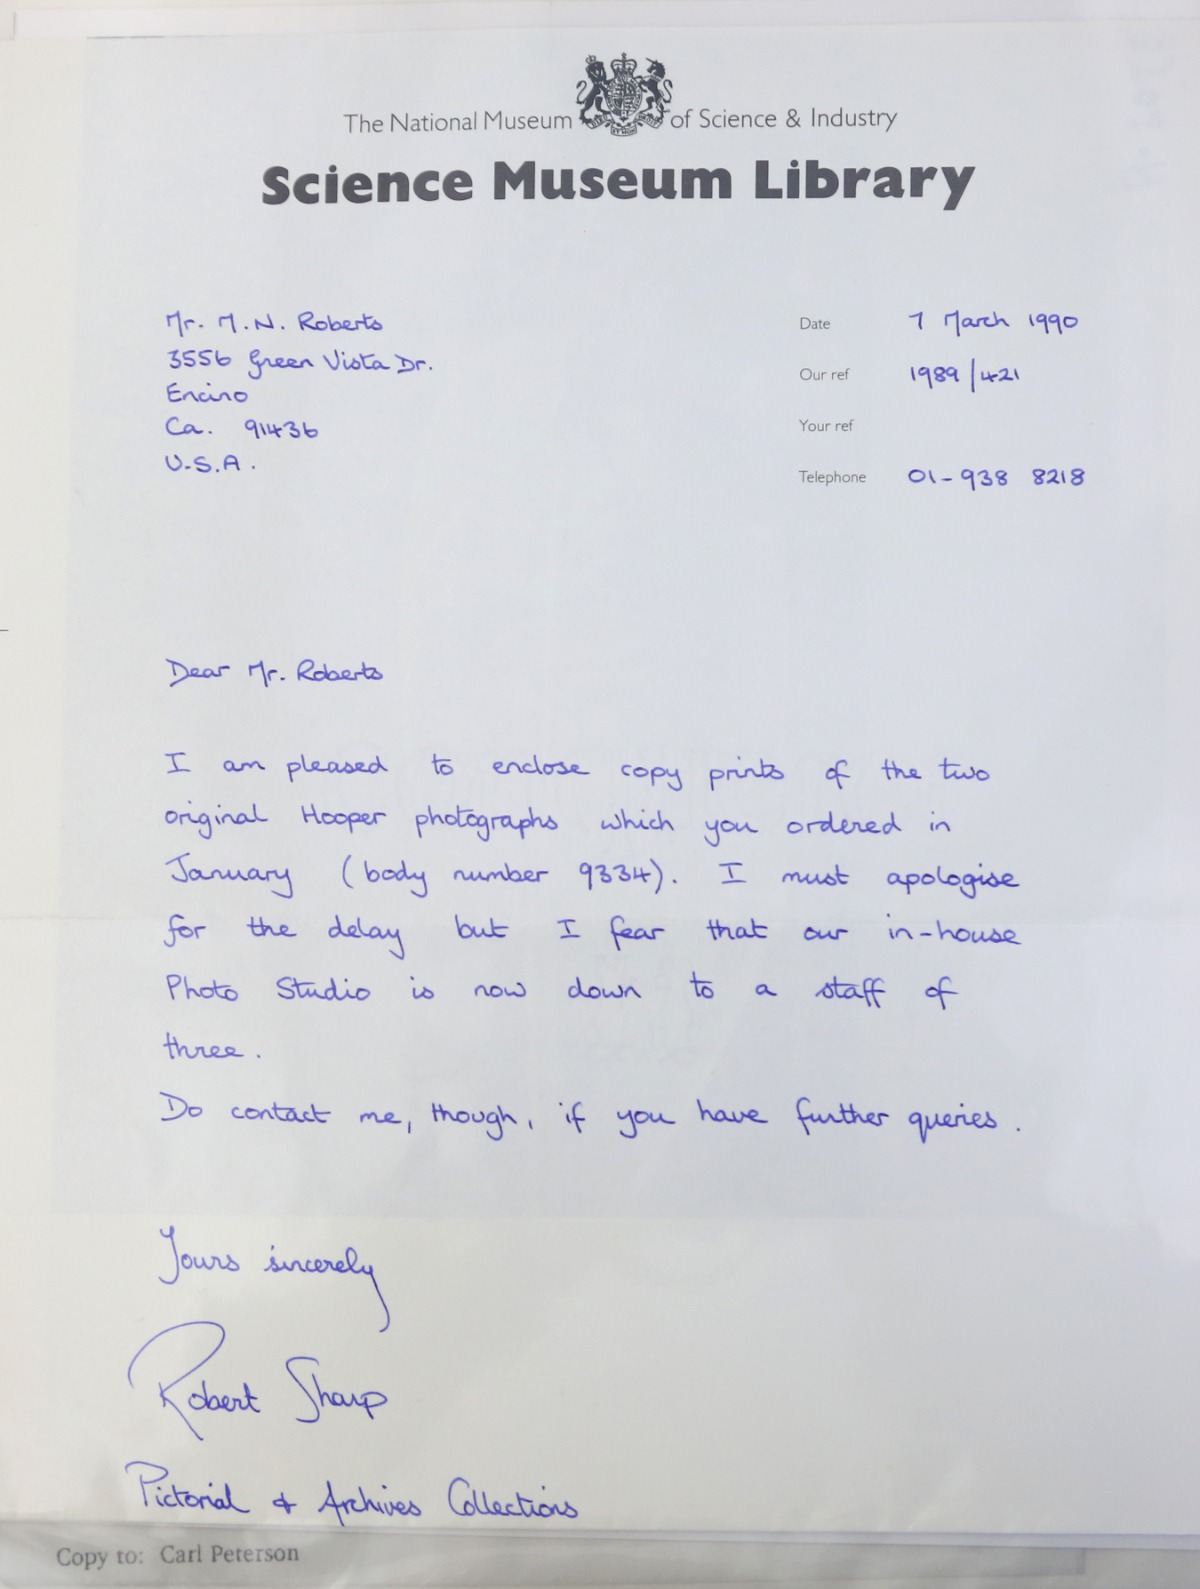 The National Museum of Science & Industry
Science Museum Library
Mr. M.N. Roberts
3556 Green Vista Dr.
Encino
Ca. 91436
U.S.A.
Date 7 March 1990
Our ref 1989/421
Your ref
Telephone 01-938 8218
Dear Mr. Roberts
I am pleased to enclose copy prints of the two
original Hooper photographs which you ordered in
January (body number 9334). I must apologise
for the delay but I fear that our in-house
Photo Studio is now down to a staff of
three.
Do contact me, though, if you have further queries.
Yours sincerely
Robert Sharp
Pictorial & Archives Collections
Copy to: Carl Peterson